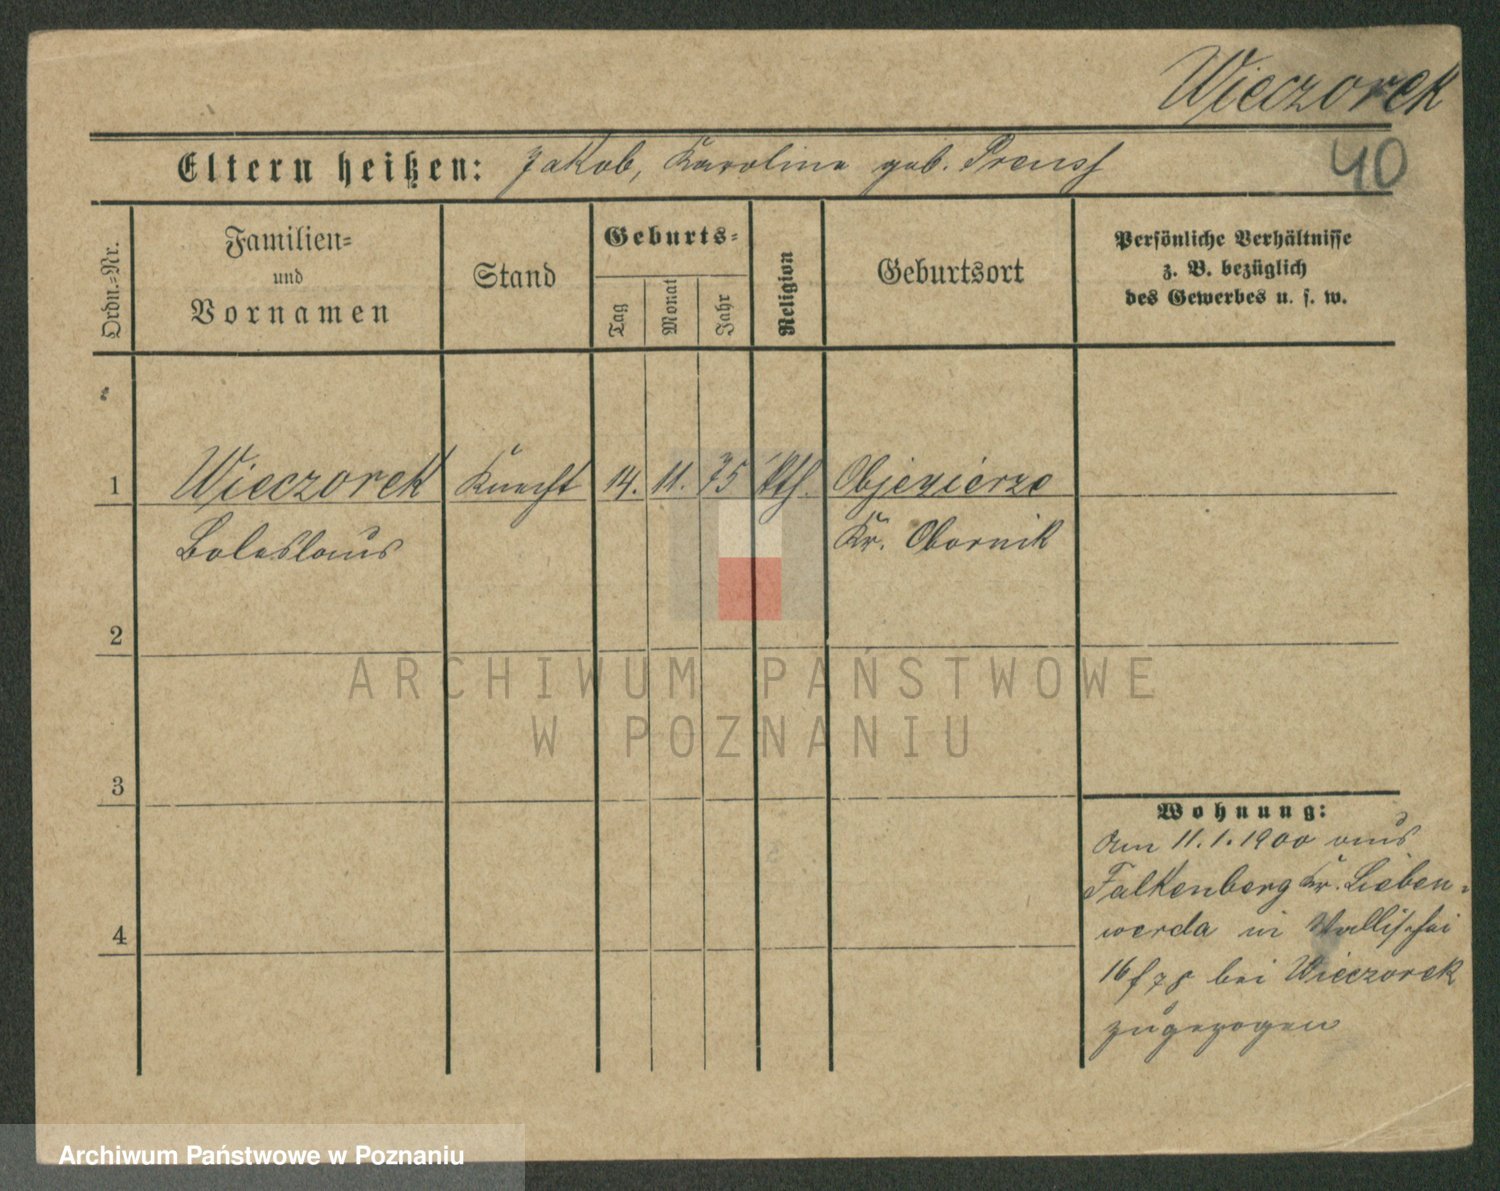 Wieczorek
40
Eltern heißen: Jakob, Karolina geb. Preuss
Ordn.-Nr.
Familien-
und
Vornamen
Stand
Geburts-
Tag
Monat
Jahr
Religion
Geburtsort
Persönliche Verhältnisse
z. B. bezüglich
des Gewerbes u. s. w.
1 Wieczorek Knecht 14. 11. 75 kth. Objezierze
Boleslaus Kr. Obornik
2
ARCHIWUM PAŃSTWOWE
W POZNANIU
3
Wohnung:
Am 11.1.1900 aus
Falkenberg Kr. Lieben-
werda in Wallischei
16/78 bei Wieczorek
zugezogen
4
Archiwum Państwowe w Poznaniu